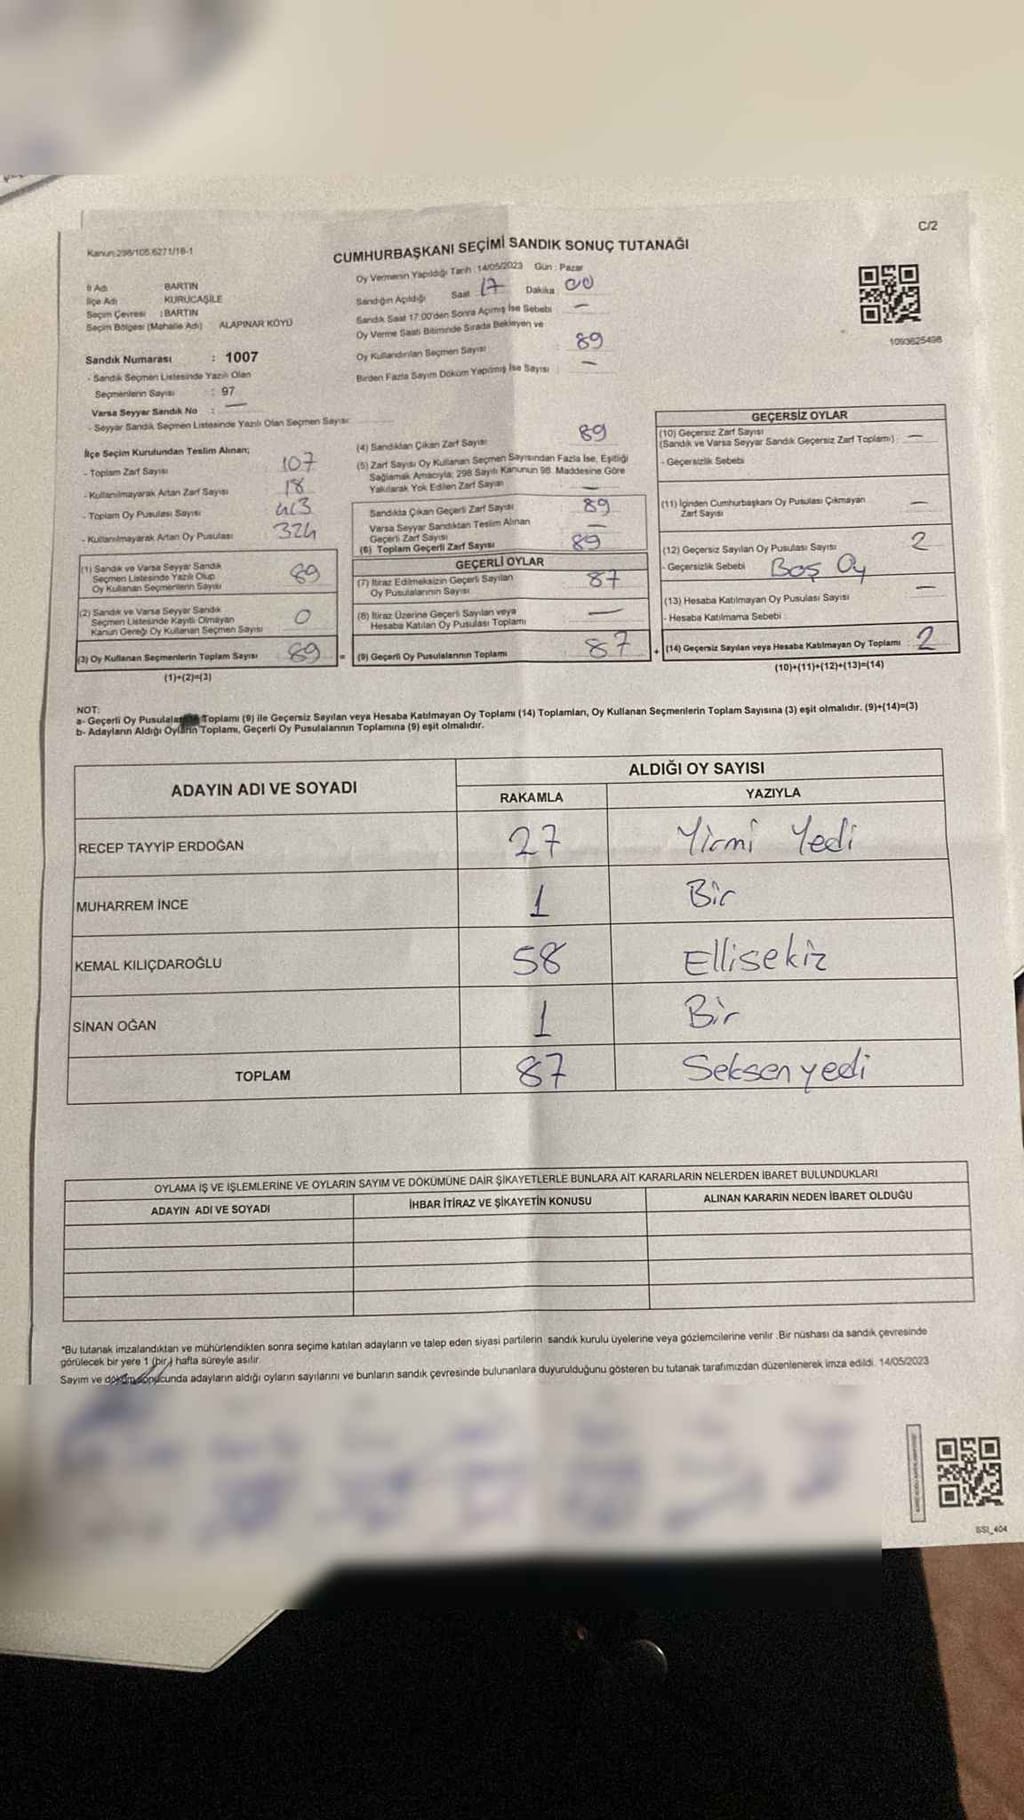 C/2
Kanun:298/105,6271/18-1
CUMHURBAŞKANI SEÇİMİ SANDIK SONUÇ TUTANAĞI
Oy Vermenin Yapıldığı Tarih : 14/05/2023 Gün : Pazar
İl Adı BARTIN
İlçe Adı KURUCAŞİLE
Seçim Çevresi : BARTIN
Seçim Bölgesi (Mahalle Adı) ALAPINAR KÖYÜ
Sandık Numarası : 1007
- Sandık Seçmen Listesinde Yazılı Olan
Seçmenlerin Sayısı : 97
Varsa Seyyar Sandık No : —
- Seyyar Sandık Seçmen Listesinde Yazılı Olan Seçmen Sayısı:
Sandığın Açıldığı Saat 17 Dakika 00
Sandık Saat 17:00'den Sonra Açılmış İse Sebebi —
Oy Verme Saati Bitiminde Sırada Bekleyen ve
Oy Kullandırılan Seçmen Sayısı 89
Birden Fazla Sayım Döküm Yapılmış İse Sayısı —
1093625498
İlçe Seçim Kurulundan Teslim Alınan;
- Toplam Zarf Sayısı 107
- Kullanılmayarak Artan Zarf Sayısı 18
- Toplam Oy Pusulası Sayısı 413
- Kullanılmayarak Artan Oy Pusulası 324
(1) Sandık ve Varsa Seyyar Sandık
Seçmen Listesinde Yazılı Olup
Oy Kullanan Seçmenlerin Sayısı 89
(2) Sandık ve Varsa Seyyar Sandık
Seçmen Listesinde Kayıtlı Olmayan
Kanun Gereği Oy Kullanan Seçmen Sayısı 0
(3) Oy Kullanan Seçmenlerin Toplam Sayısı 89 =
(1)+(2)=(3)
(4) Sandıktan Çıkan Zarf Sayısı 89
(5) Zarf Sayısı Oy Kullanan Seçmen Sayısından Fazla İse, Eşitliği
Sağlamak Amacıyla; 298 Sayılı Kanunun 98. Maddesine Göre
Yakılarak Yok Edilen Zarf Sayısı —
Sandıkta Çıkan Geçerli Zarf Sayısı 89
Varsa Seyyar Sandıktan Teslim Alınan
Geçerli Zarf Sayısı —
(6) Toplam Geçerli Zarf Sayısı 89
GEÇERLİ OYLAR
(7) İtiraz Edilmeksizin Geçerli Sayılan
Oy Pusulalarının Sayısı 87
(8) İtiraz Üzerine Geçerli Sayılan veya
Hesaba Katılan Oy Pusulası Toplamı —
(9) Geçerli Oy Pusulalarının Toplamı 87 +
GEÇERSİZ OYLAR
(10) Geçersiz Zarf Sayısı
(Sandık ve Varsa Seyyar Sandık Geçersiz Zarf Toplamı) —
- Geçersizlik Sebebi
(11) İçinden Cumhurbaşkanı Oy Pusulası Çıkmayan
Zarf Sayısı —
(12) Geçersiz Sayılan Oy Pusulası Sayısı 2
- Geçersizlik Sebebi Boş Oy
(13) Hesaba Katılmayan Oy Pusulası Sayısı —
- Hesaba Katılmama Sebebi
(14) Geçersiz Sayılan veya Hesaba Katılmayan Oy Toplamı : 2
(10)+(11)+(12)+(13)=(14)
NOT:
a- Geçerli Oy Toplamı (9) ile Geçersiz Sayılan veya Hesaba Katılmayan Oy Toplamı (14) Toplamları, Oy Kullanan Seçmenlerin Toplam Sayısına (3) eşit olmalıdır. (9)+(14)=(3)
b- Adayların Aldığı Oyların Toplamı, Geçerli Oy Pusulalarının Toplamına (9) eşit olmalıdır.
ADAYIN ADI VE SOYADI
ALDIĞI OY SAYISI
RAKAMLA YAZIYLA
RECEP TAYYİP ERDOĞAN 27 Yirmi Yedi
MUHARREM İNCE 1 Bir
KEMAL KILIÇDAROĞLU 58 Ellisekiz
SİNAN OĞAN 1 Bir
TOPLAM 87 Seksenyedi
OYLAMA İŞ VE İŞLEMLERİNE VE OYLARIN SAYIM VE DÖKÜMÜNE DAİR ŞİKAYETLERLE BUNLARA AİT KARARLARIN NELERDEN İBARET BULUNDUKLARI
ADAYIN ADI VE SOYADI İHBAR İTİRAZ VE ŞİKAYETİN KONUSU ALINAN KARARIN NEDEN İBARET OLDUĞU
*Bu tutanak imzalandıktan ve mühürlendikten sonra seçime katılan adayların ve talep eden siyasi partilerin sandık kurulu üyelerine veya gözlemcilerine verilir. Bir nüshası da sandık çevresinde
görülecek bir yere 1 (bir) hafta süreyle asılır.
Sayım ve döküm sonucunda adayların aldığı oyların sayılarını ve bunların sandık çevresinde bulunanlara duyurulduğunu gösteren bu tutanak tarafımızdan düzenlenerek imza edildi. 14/05/2023
SSI_404